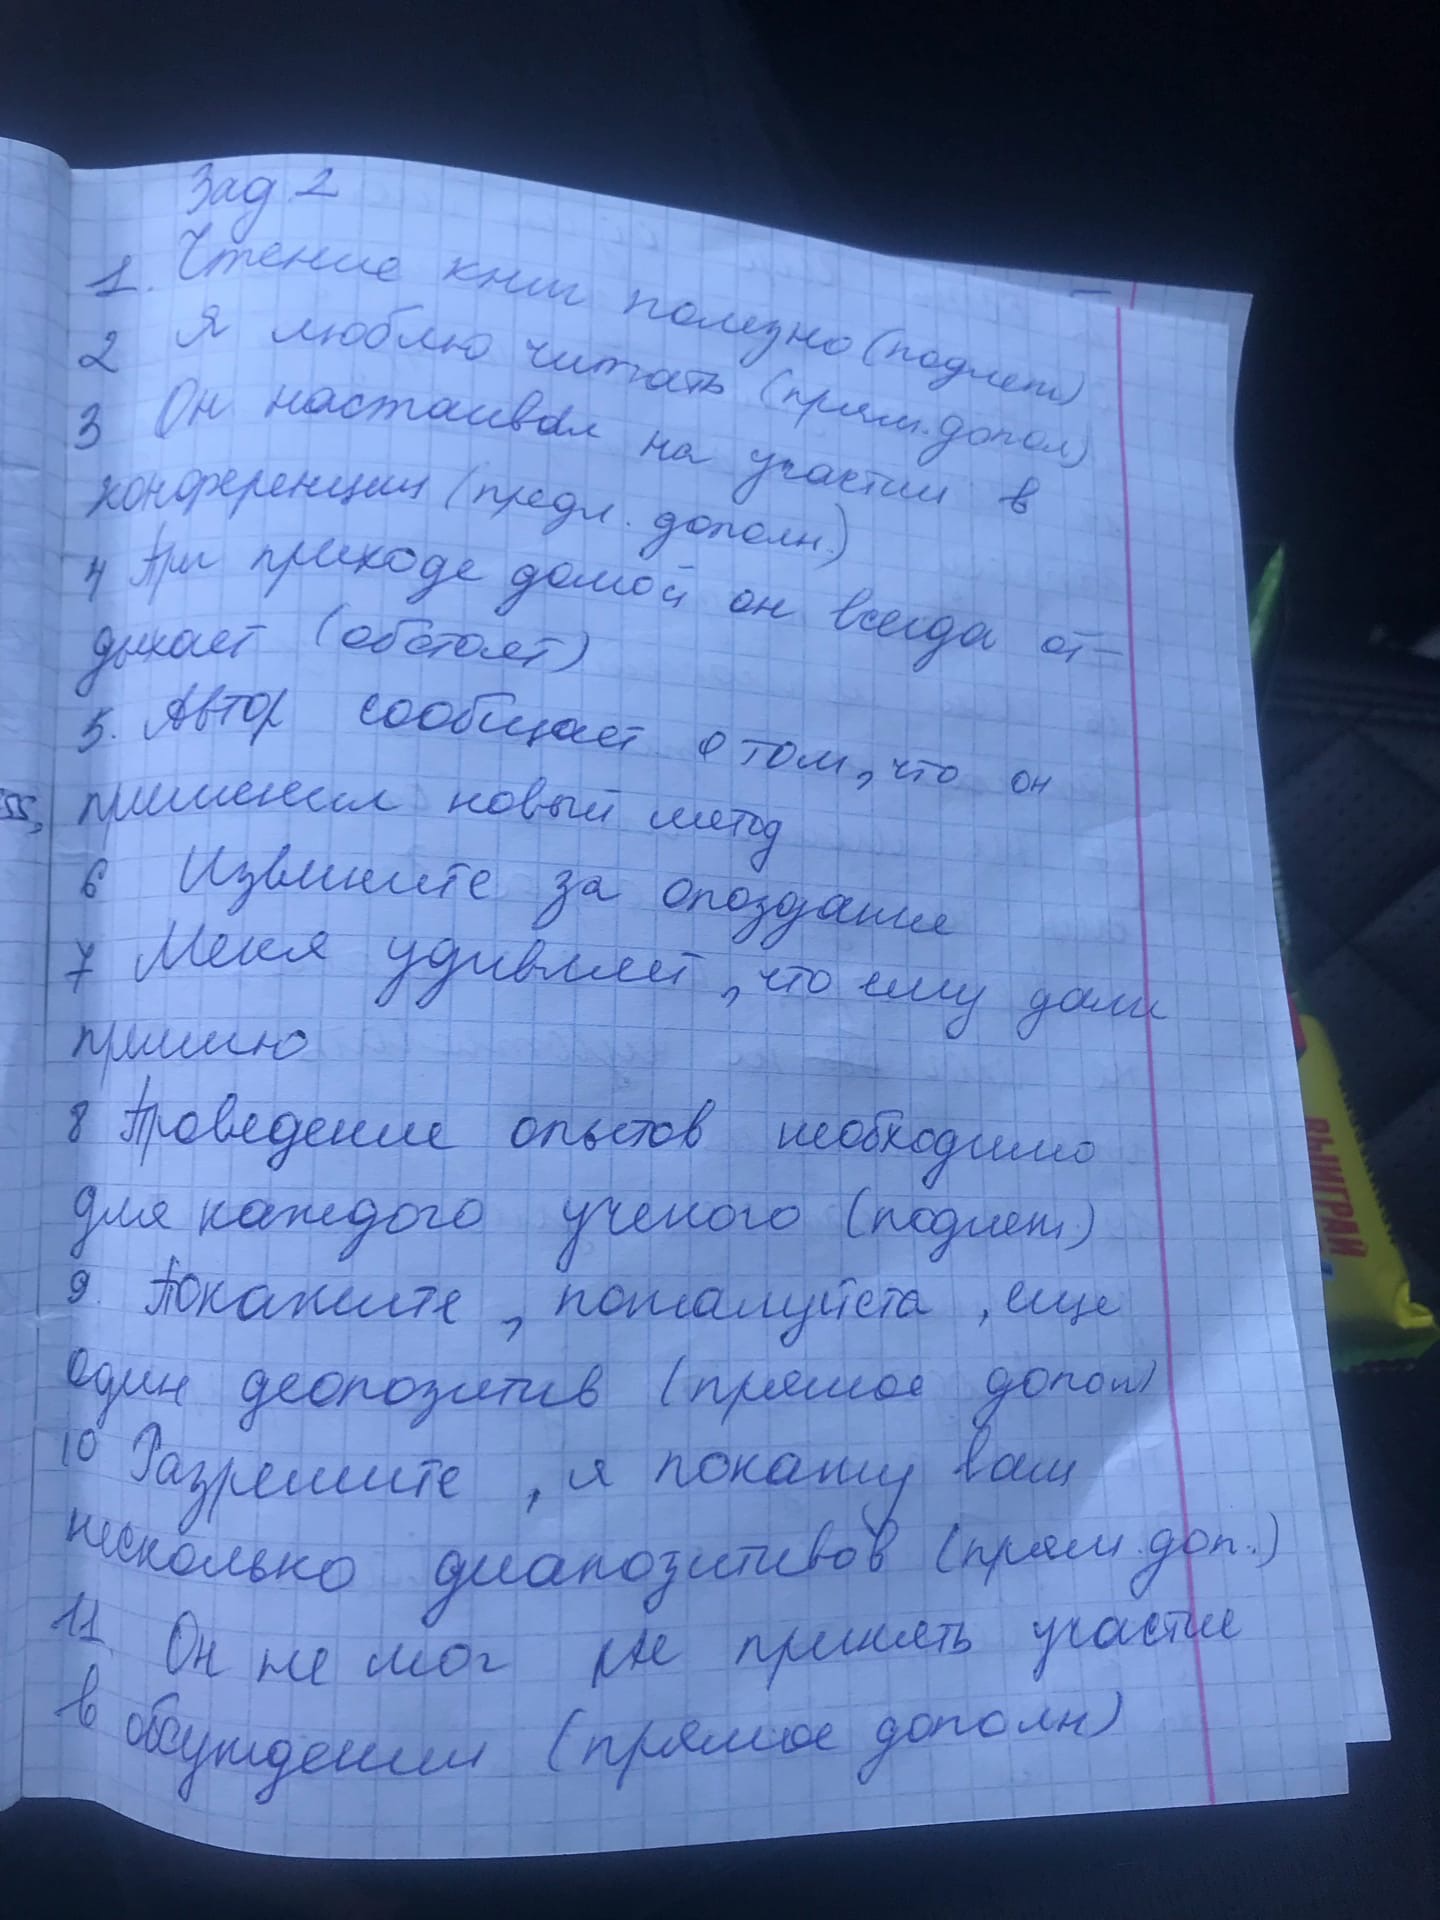 Зад 2
1. Чтение книг полезно (подлеж)
2 Я люблю читать (прям. допол)
3 Он настаивал на участии в
конференции (предл. дополн.)
4 При приходе домой он всегда от-
дыхает (обстоят)
5. Автор сообщает о том, что он
применил новый метод
6 Извините за опоздание
7 Меня удивляет, что ему дали
премию
8 Проведение опытов необходимо
для каждого ученого (подлеж)
9. Покажите, пожалуйста, еще
один деопозитив (прямое допол)
10 Разрешите, я покажу вам
несколько диапозитивов (прям. доп.)
11 Он не мог не принять участие
в обсуждении (прямое дополн)
55,
ВЫИГРАЙ